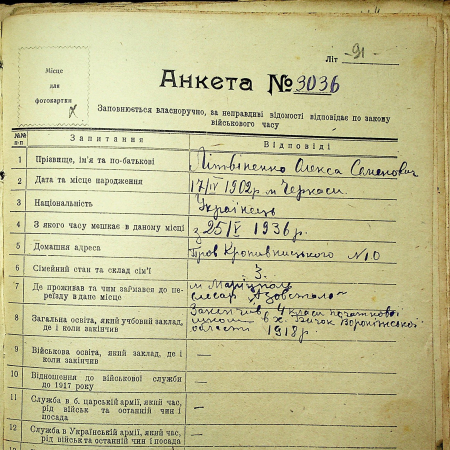 Літ -91-
Місце
для
фотокартки
Анкета № 3036
Заповнюється власноручно, за неправдиві відомості відповідає по закону
військового часу
№№ п-п
Запитання
Відповіді
1 Прізвище, ім'я та по-батькові
Литвіненко Олекса Семенович
2 Дата та місце народження
17/IV 1902 р. м Черкаси.
3 Національність
Українець
4 З якого часу мешкає в даному місці
з 25/V 1936 р.
5 Домашня адреса
Пров Кропивницького №10
6 Сімейний стан та склад сім'ї
3.
7 Де проживав та чим займався до пе-
реїзду в дане місце
м Маріуполь
слюсар "Азовсталь"
8 Загальна освіта, який учбовий заклад,
де і коли закінчив
Закінчив 4 класи початкової
школи в х. Бичок Воронізької
області 1918 р.
9 Військова освіта, який заклад, де і
коли закінчив
—
10 Відношення до військової служби
до 1917 року
—
11 Служба в б. царській армії, який час,
рід військ та останній чин і
посада
—
12 Служба в Українській армії, який час,
рід військ та останній чин і посада
—